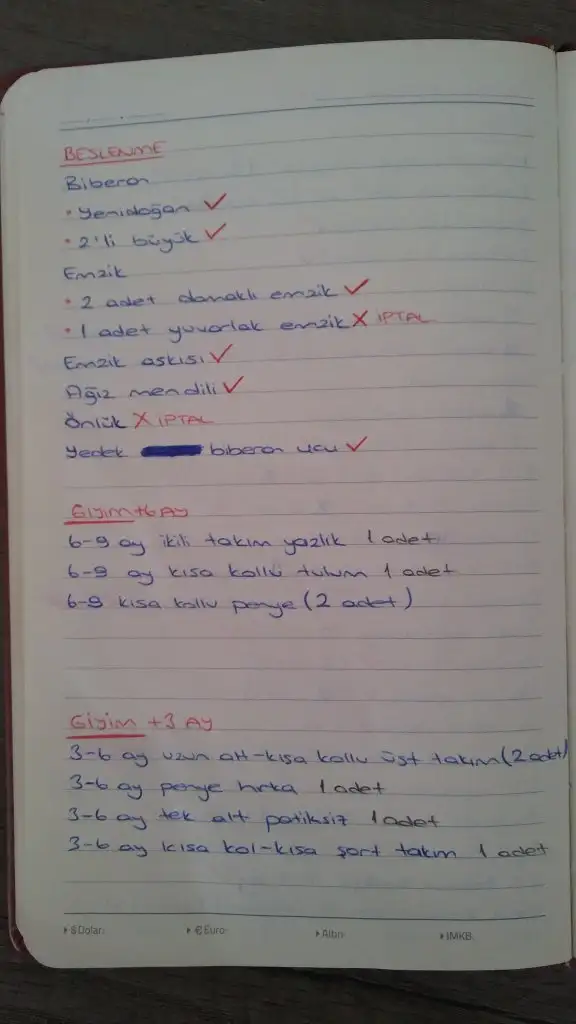 BESLENME
Biberon
• Yenidoğan ✓
• 2'li büyük ✓
Emzik
• 2 adet damaklı emzik ✓
• 1 adet yuvarlak emzik X İPTAL
Emzik askısı ✓
Ağız mendili ✓
Önlük X İPTAL
Yedek biberon ucu ✓
Giyim +6 Ay
6-9 ay ikili takım yazlık 1 adet
6-9 ay kısa kollu tulum 1 adet
6-9 kısa kollu penye (2 adet)
Giyim +3 Ay
3-6 ay uzun alt-kısa kollu üst takım (2 adet)
3-6 ay penye hırka 1 adet
3-6 ay tek alt patiksiz 1 adet
3-6 ay kısa kol-kısa şort takım 1 adet
$ Dolar: € Euro: Altın: IMKB: